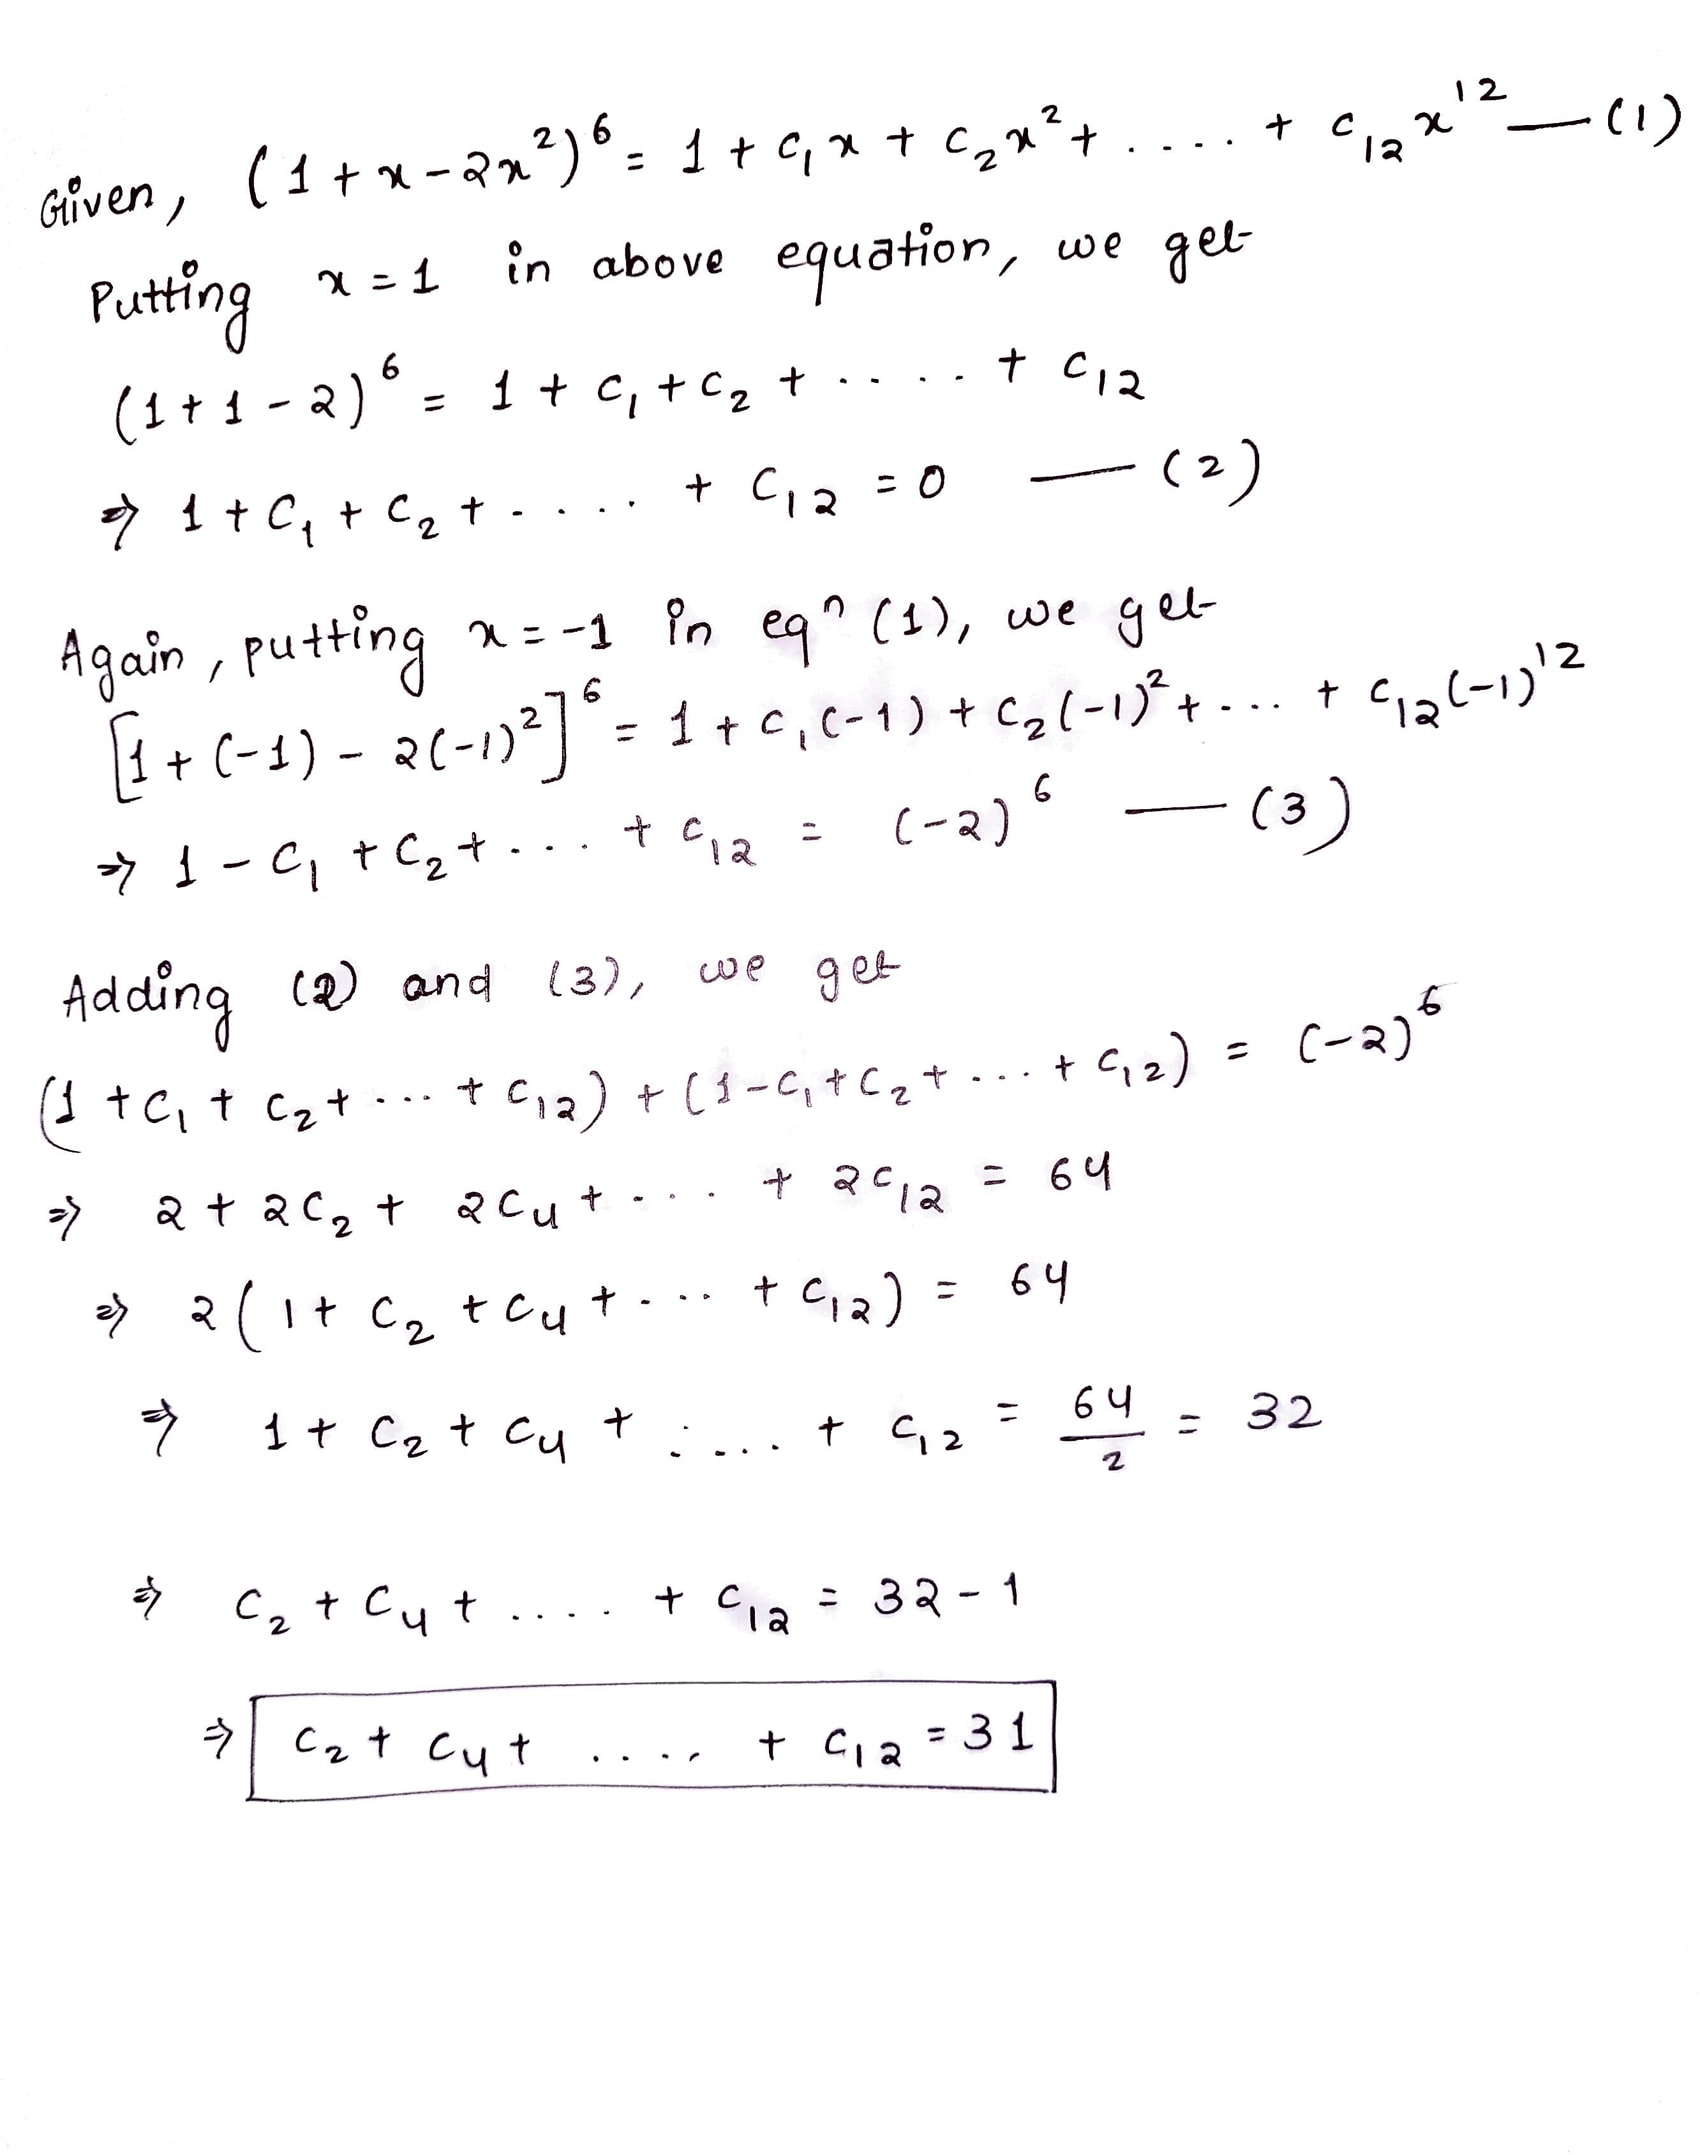 Given, (1 + x - 2x²)⁶ = 1 + c₁x + c₂x² + .... + c₁₂x¹² — (1)
Putting x = 1 in above equation, we get
(1+1-2)⁶ = 1 + c₁ + c₂ + ..... + c₁₂
⇒ 1 + c₁ + c₂ + ..... + c₁₂ = 0 — (2)
Again, putting x = -1 in eqⁿ (1), we get
[1 + (-1) - 2(-1)²]⁶ = 1 + c₁(-1) + c₂(-1)² + .... + c₁₂(-1)¹²
⇒ 1 - c₁ + c₂ + .... + c₁₂ = (-2)⁶ — (3)
Adding (2) and (3), we get
(1 + c₁ + c₂ + .... + c₁₂) + (1 - c₁ + c₂ + .... + c₁₂) = (-2)⁶
⇒ 2 + 2c₂ + 2c₄ + .... + 2c₁₂ = 64
⇒ 2(1 + c₂ + c₄ + .... + c₁₂) = 64
⇒ 1 + c₂ + c₄ + ..... + c₁₂ = 64/2 = 32
⇒ c₂ + c₄ + .... + c₁₂ = 32 - 1
⇒ c₂ + c₄ + ..... + c₁₂ = 31